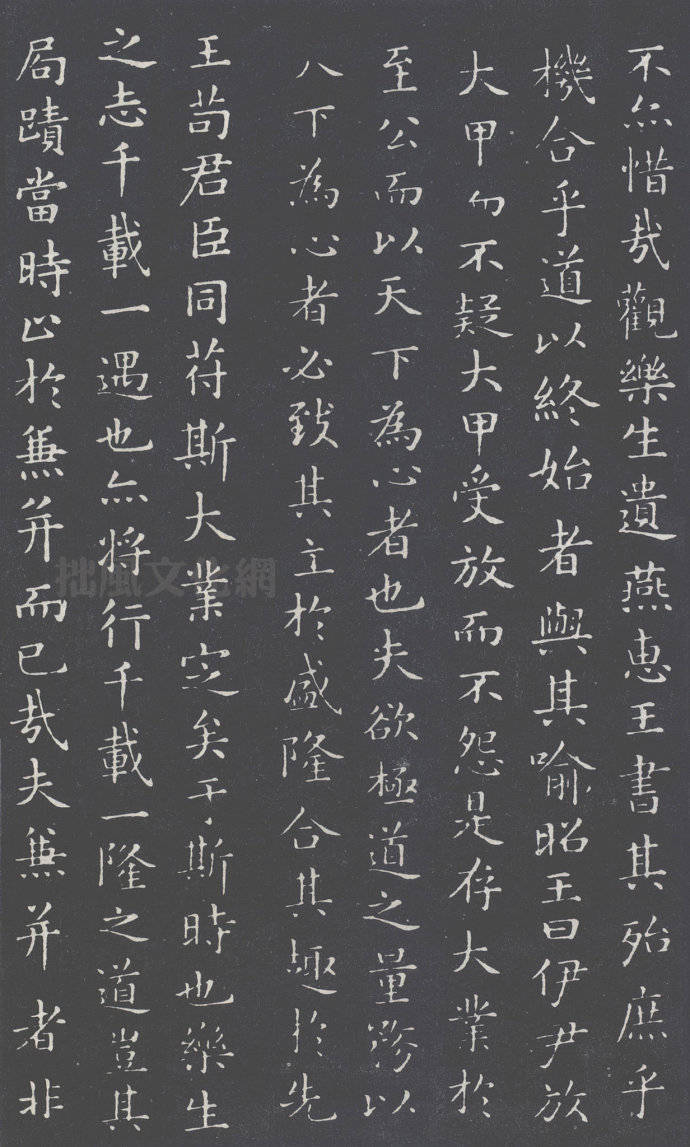 不亦惜哉觀樂生遺燕惠王書其殆庶乎
機合乎道以終始者與其喻昭王曰伊尹放
大甲而不疑大甲受放而不怨是存大業於
至公而以天下為心者也夫欲極道之量務以
天下為心者必致其主於盛隆合其趣於先
王苟君臣同苻斯大業定矣于斯時也樂生
之志千載一遇也亦將行千載一隆之道豈其
局蹟當時止於兼并而已哉夫兼并者非
拙風文化網